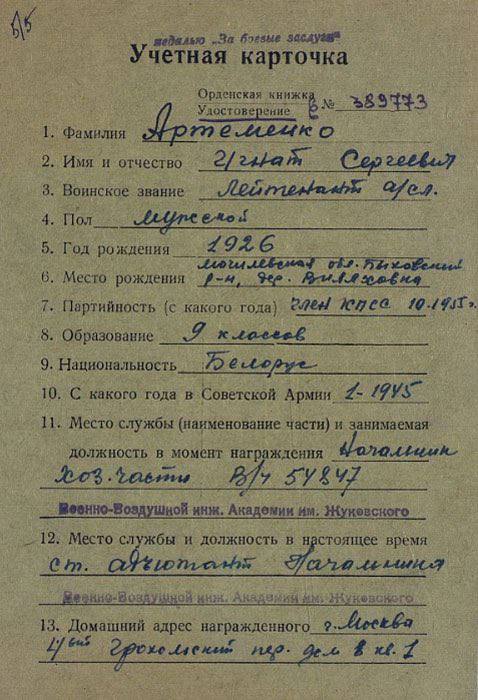 б/5
медалью „За боевые заслуги"
Учетная карточка
Орденская книжка
Удостоверение Б № 389773
1. Фамилия Артеменко
2. Имя и отчество Игнат Сергеевич
3. Воинское звание Лейтенант а/сл.
4. Пол мужской
5. Год рождения 1926
могилевская обл. Быховский
6. Место рождения р-н, дер. Виляховка
7. Партийность (с какого года) член КПСС 10.1955 г.
8. Образование 9 классов
9. Национальность Белорус
10. С какого года в Советской Армии 1-1945
11. Место службы (наименование части) и занимаемая
должность в момент награждения Начальник
хоз. части В/ч 54847
Военно-Воздушной инж. Академии им. Жуковского
12. Место службы и должность в настоящее время
ст. адъютант Начальника
Военно-Воздушной инж. Академии им. Жуковского
13. Домашний адрес награжденного г. Москва
4ый Грохольский пер. дом 8 кв. 1